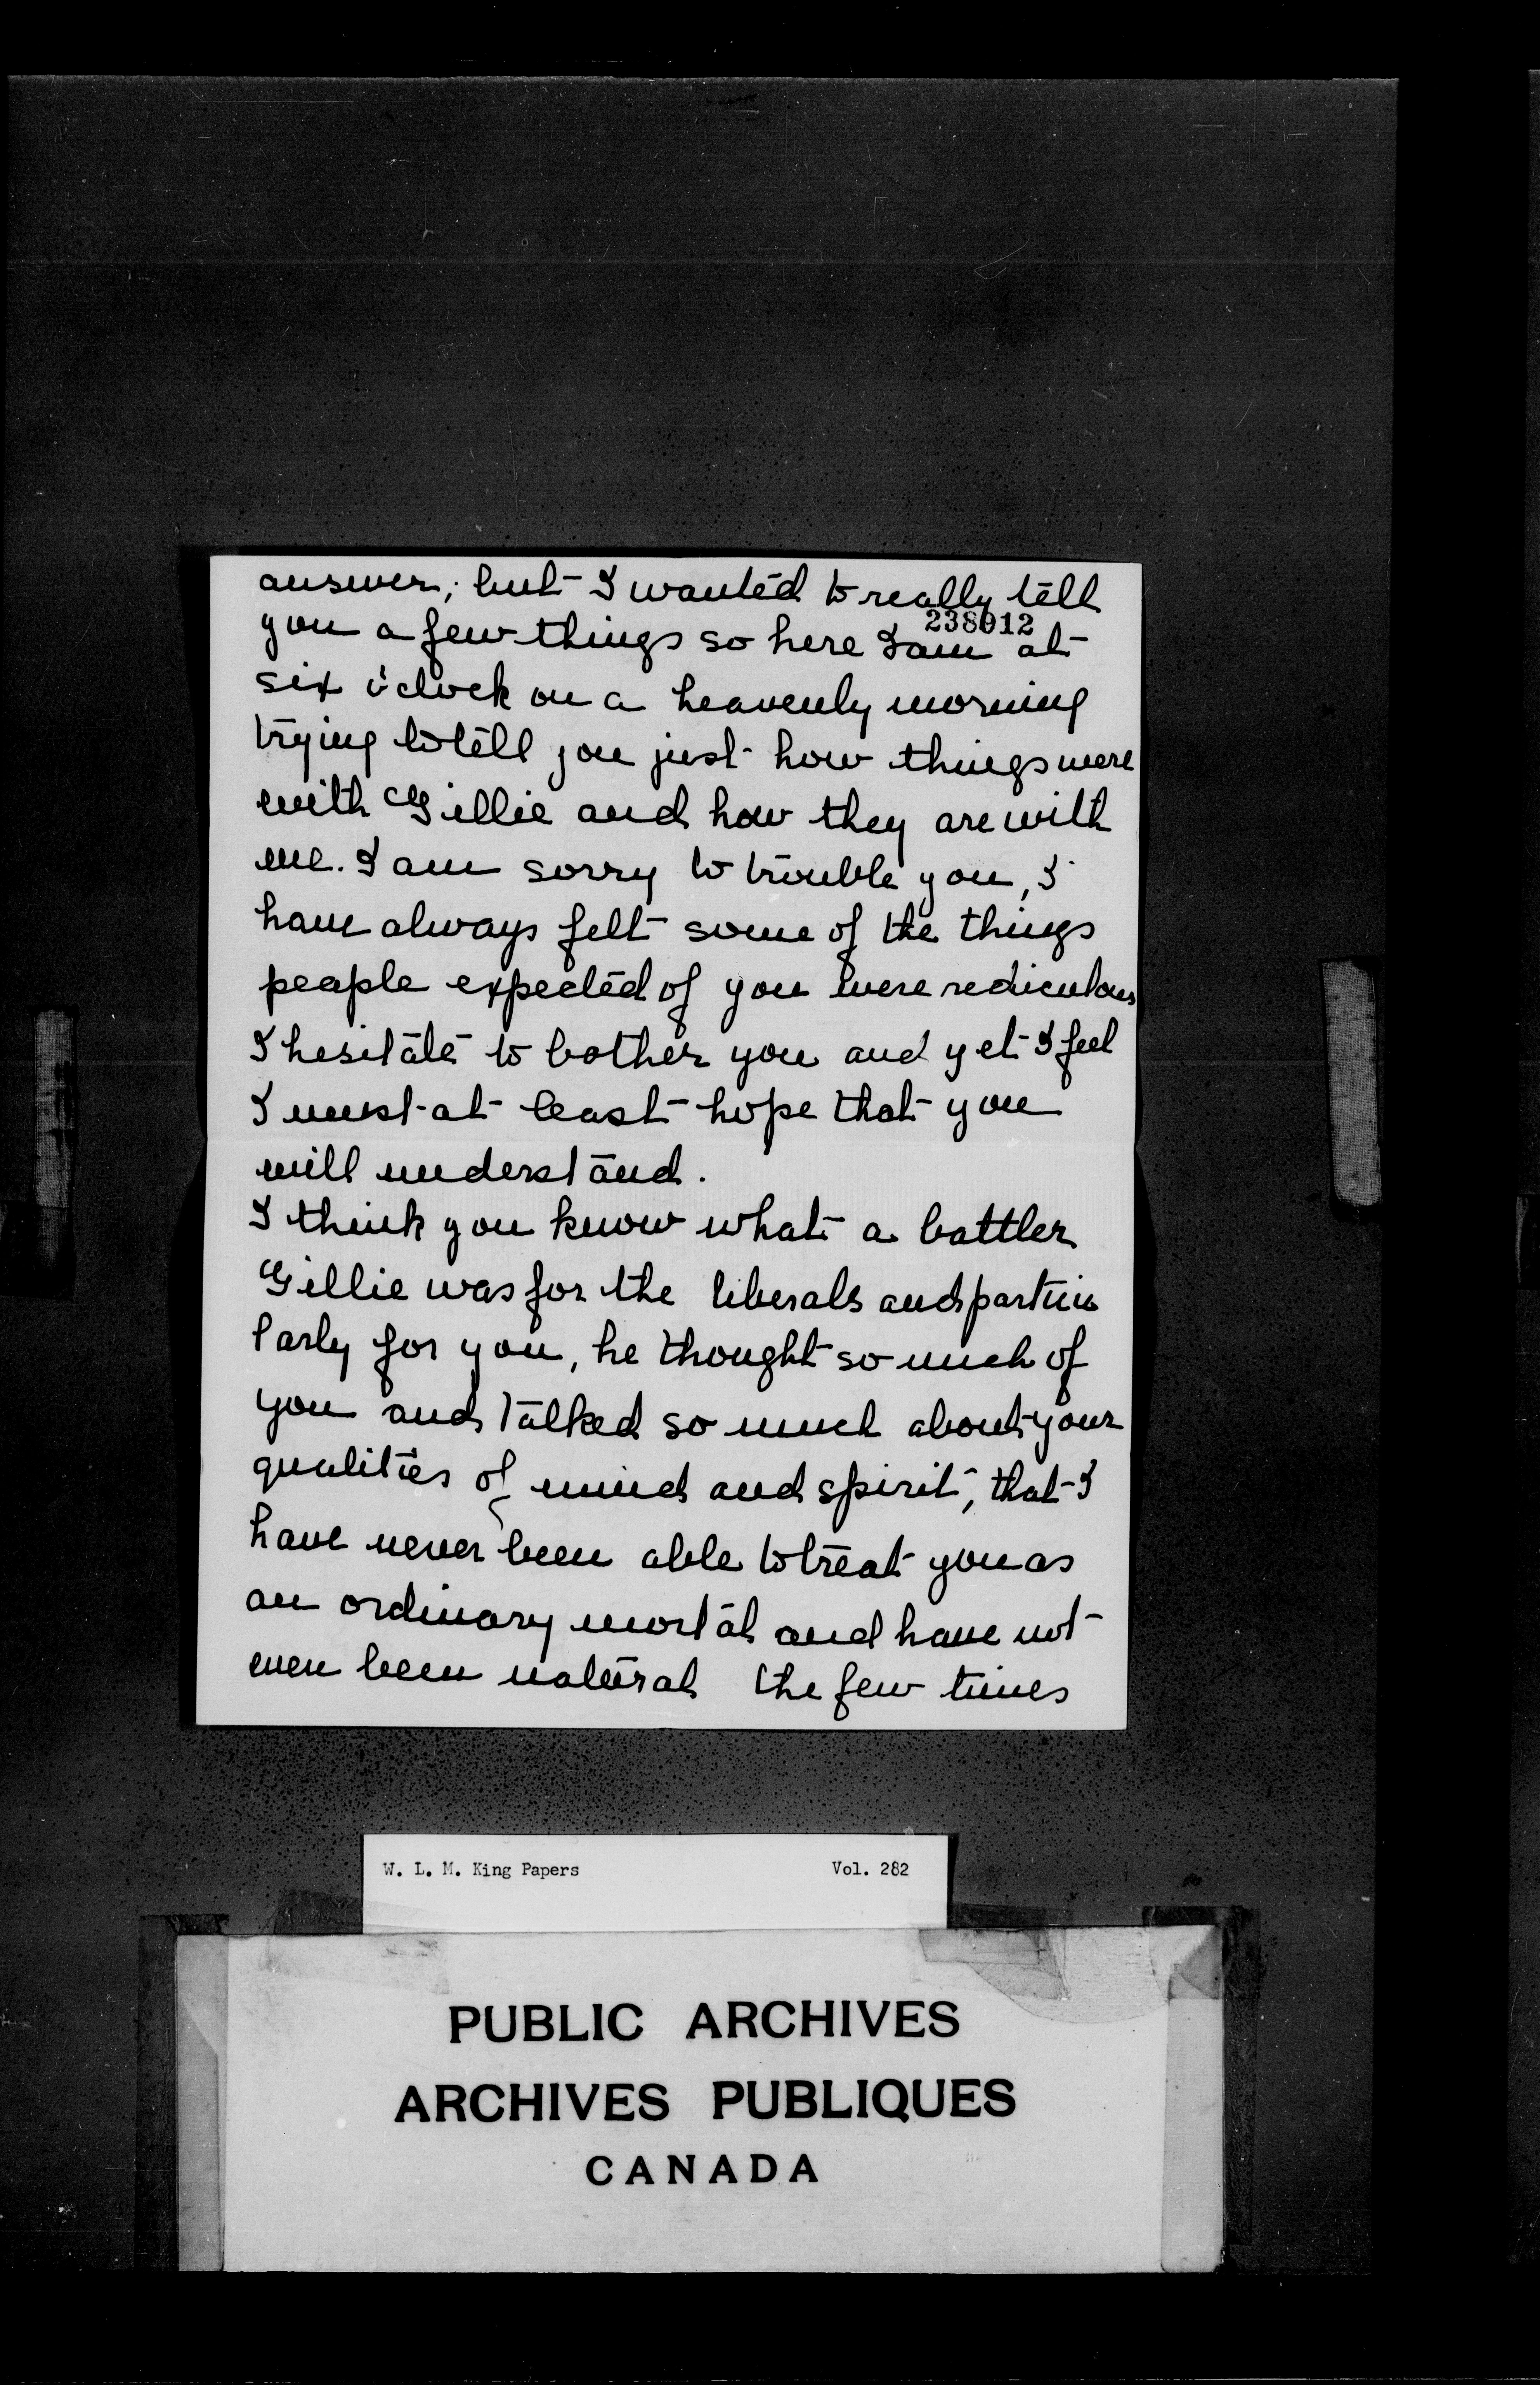 answer; but I wanted to really tell
238012
you a few things so here I am at
six o'clock on a heavenly morning
trying to tell you just how things were
with Gillie and how they are with
me. I am sorry to trouble you, I
have always felt some of the things
people expected of you were rediculous
I hesitate to bother you and yet I feel
I must at least hope that you
will understand.
I think you know what a battler
Gillie was for the liberals and particu
larly for you, he thought so much of
you and talked so much about your
qualities of mind and spirit, that I
have never been able to treat you as
an ordinary mortal and have not
even been natural the few times
W. L. M. King Papers Vol. 282
PUBLIC ARCHIVES
ARCHIVES PUBLIQUES
CANADA